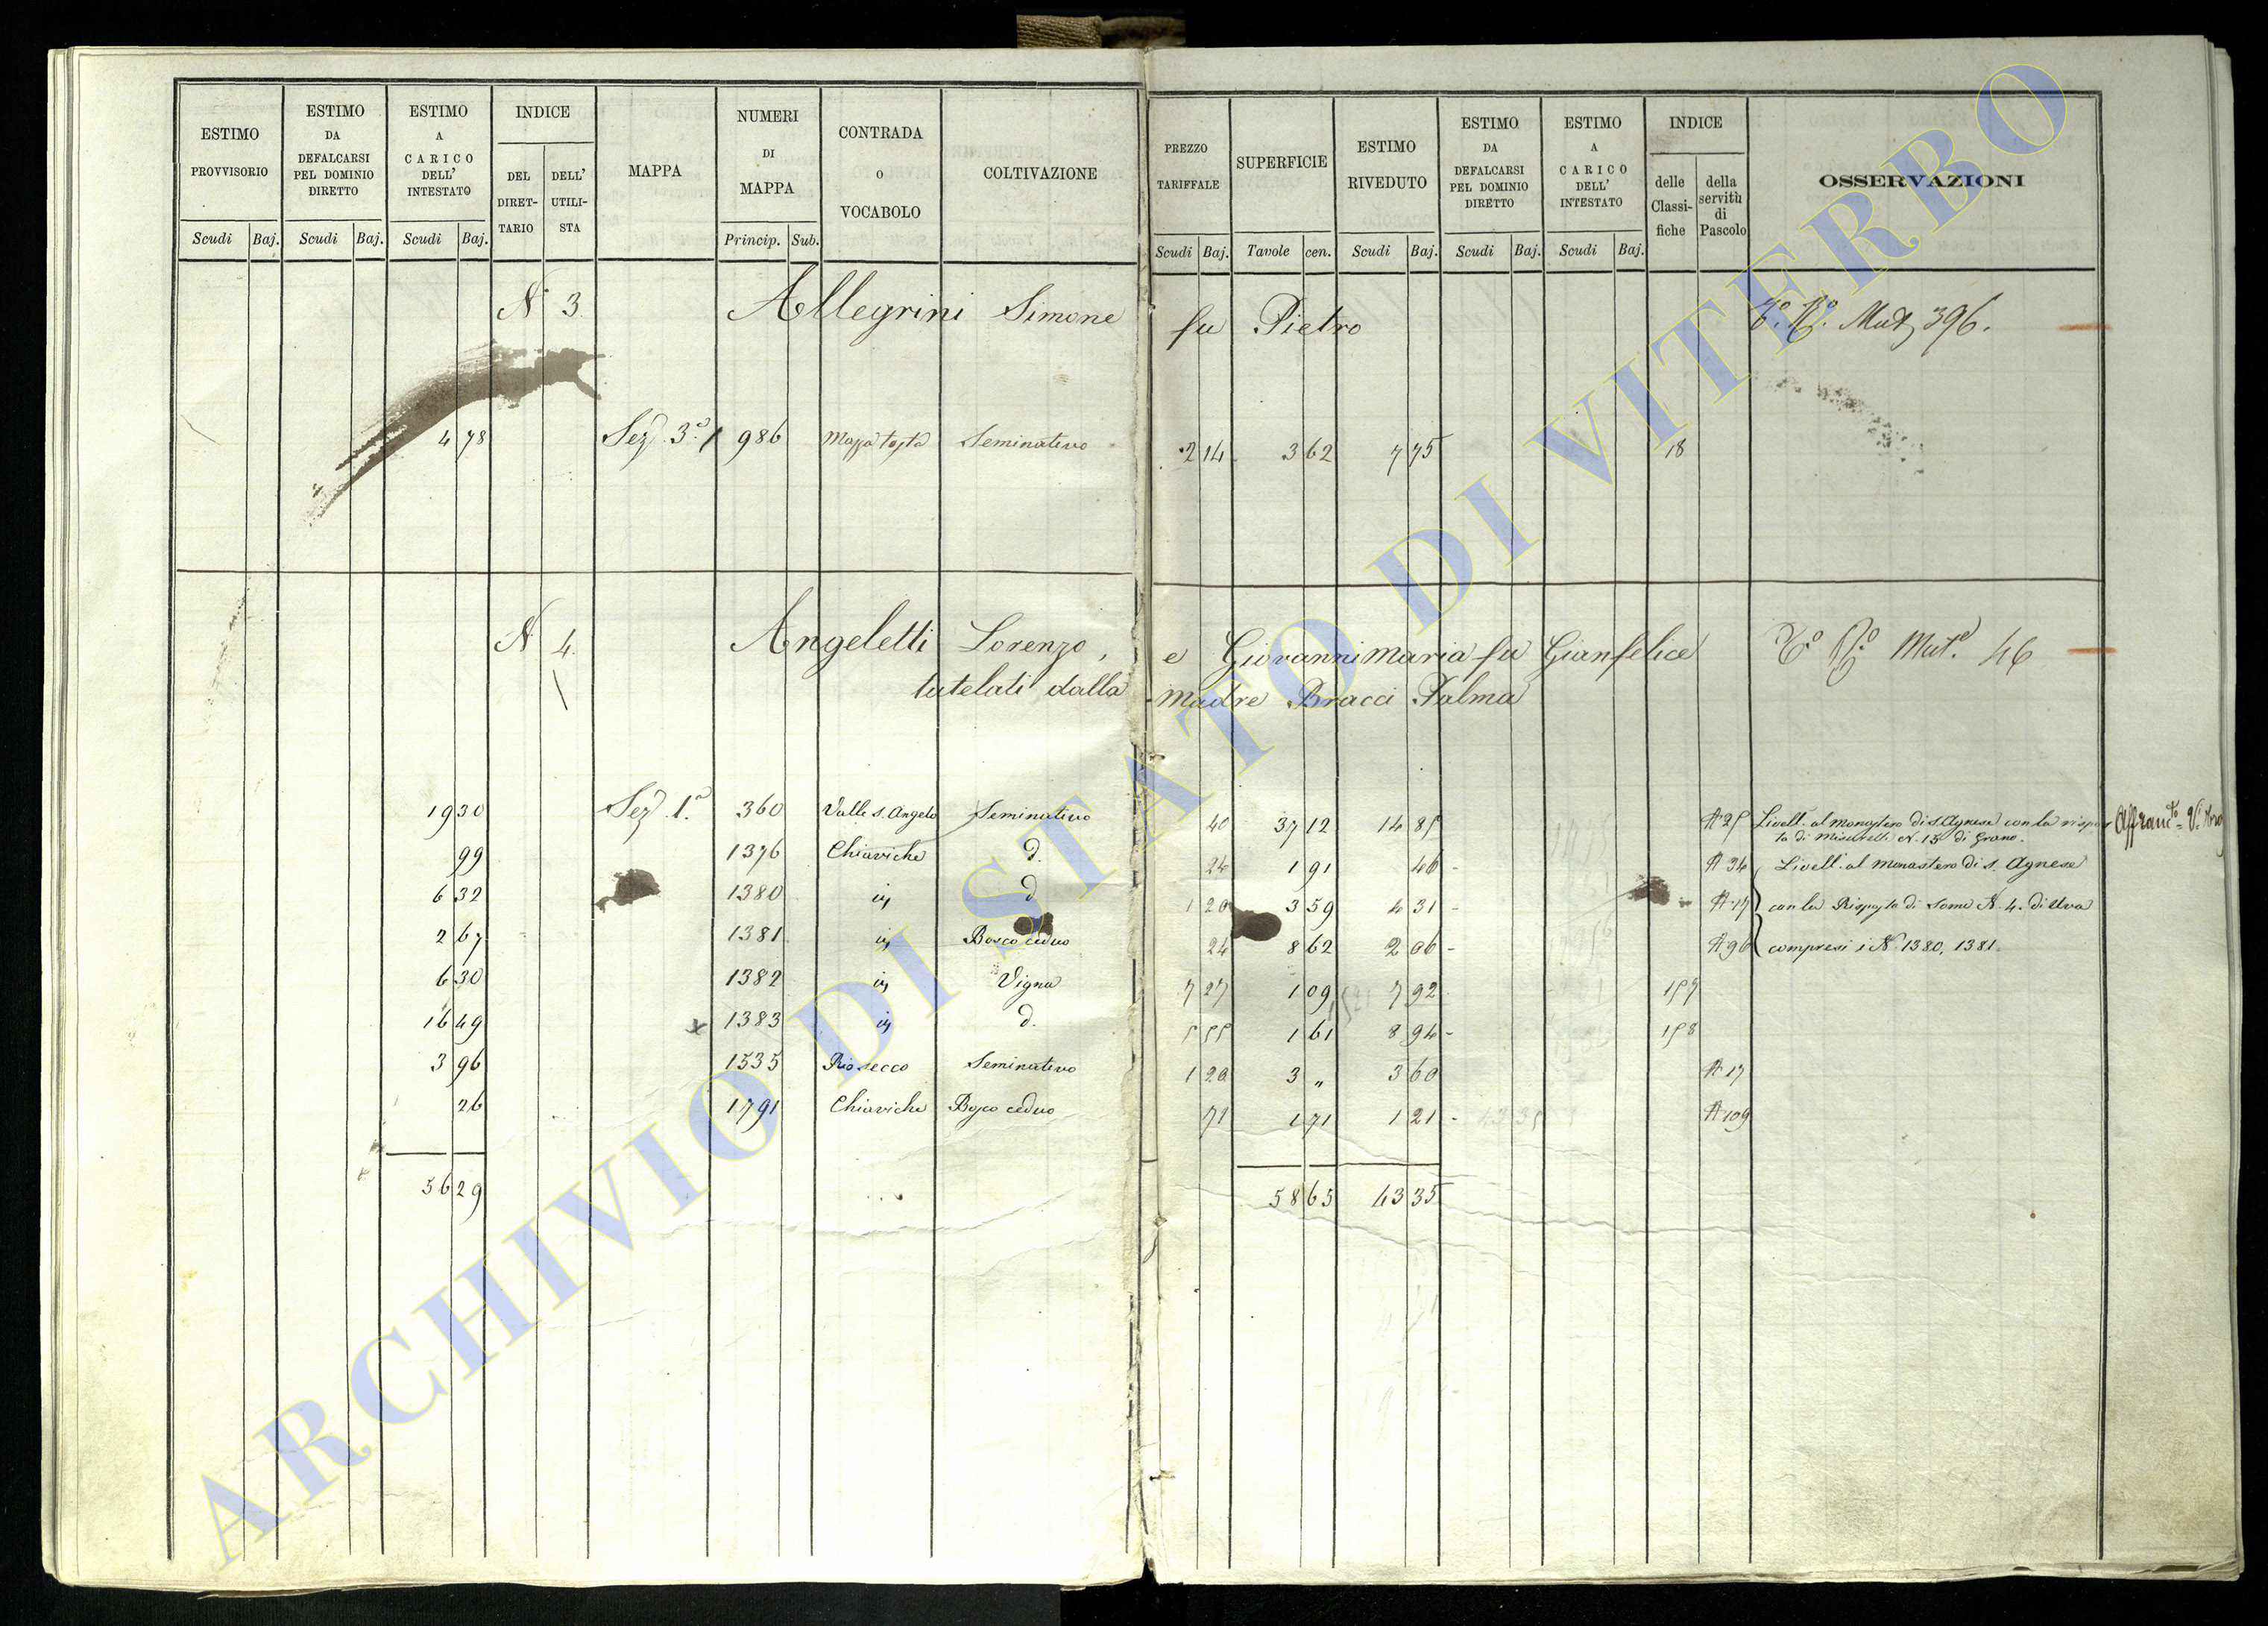 ESTIMO PROVVISORIO
ESTIMO DA DEFALCARSI PEL DOMINIO DIRETTO
ESTIMO A CARICO DELL' INTESTATO
INDICE
DEL DIRET-TARIO
DELL' UTILI-STA
MAPPA
NUMERI DI MAPPA
CONTRADA O VOCABOLO
COLTIVAZIONE
PREZZO TARIFFALE
SUPERFICIE
ESTIMO RIVEDUTO
ESTIMO DA DEFALCARSI PEL DOMINIO DIRETTO
ESTIMO A CARICO DELL' INTESTATO
INDICE
delle Classi-fiche
della servitù di Pascolo
OSSERVAZIONI
Scudi Baj. Scudi Baj. Scudi Baj. Princip. Sub. Scudi Baj. Tavole cen. Scudi Baj. Scudi Baj. Scudi Baj.
N 3 Allegrini Simone fu Pietro 396.
4 78 Sez. 3ª 986 Seminativo 2 14 3 62 7 75 18
N 4. Angeletti Lorenzo, e Giovannimaria fu Gianfelice Mut. 46
tutelati dalla madre Bracci Palma
19 30 Sez. 1ª 360 Valle S. Angelo Seminativo 40 37 12 14 85 A 25 Livell. al monastero di S. Agnese con la rispos
ta di Misurelli N. 15 di Grano.
99 1376 Chiaviche d. 24 1 91 46 A 34 Livell. al monastero di S. Agnese
6 32 1380 d 1 20 3 59 4 31 A 17 con la Risposta di some N. 4. di Uva
2 67 1381 Bosco ceduo 24 8 62 2 06 A 96 compresi i N. 1380, 1381.
6 30 1382 Vigna 7 27 1 09 7 92 157
16 49 x 1383 d. 5 55 1 61 8 94 158
3 96 1535 Rio secco Seminativo 1 20 3 „ 3 60 A 17
26 1791 Chiaviche Bosco ceduo 71 1 71 1 21 A 109
56 29 58 65 43 35
ARCHIVIO DI STATO DI VITERBO